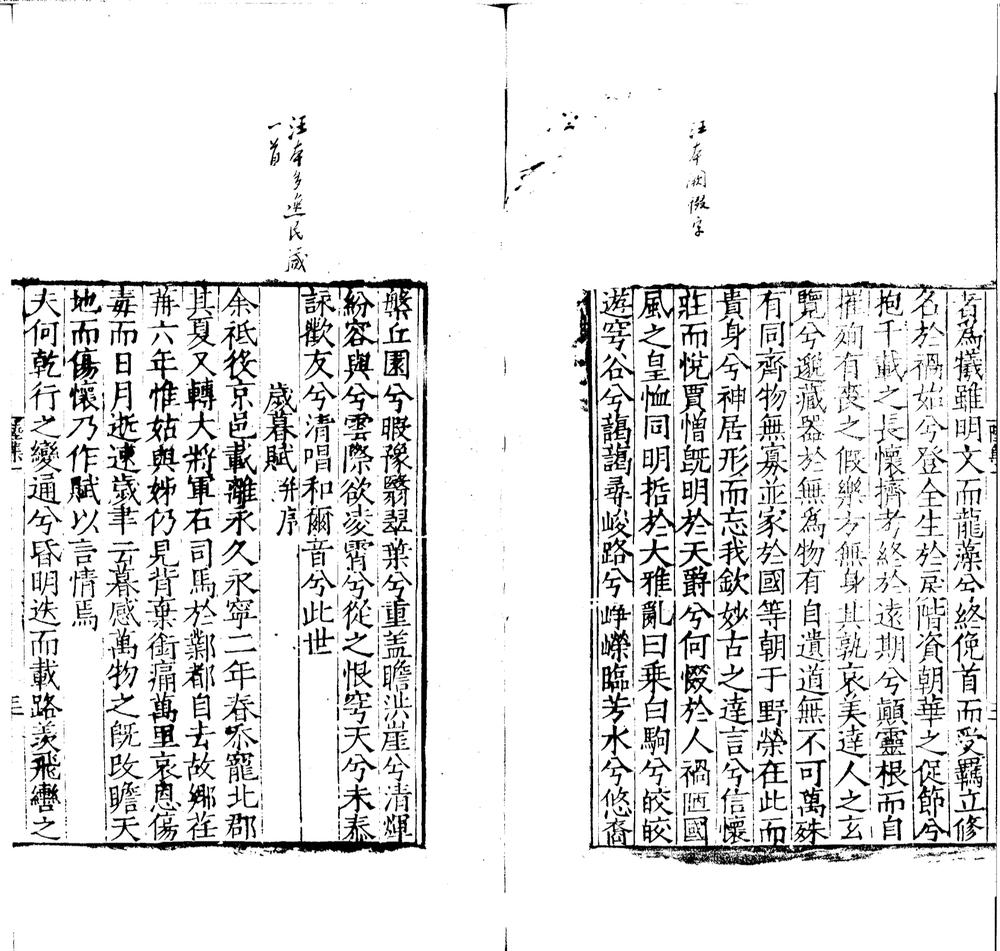 汪本闕慨字
名為犧雖明文而龍藻兮終俛首而受羈立修
名於禍始兮登全生於戾階資朝華之促節兮
抱千載之長懷擠考終於遠期兮顛靈根而自
摧殉有喪之假樂方無身其孰哀美達人之玄
覽兮邈藏器於無為物有自遺道無不可萬殊
有同齊物無寡並家於國等朝于野榮在此而
貴身兮神居形而忘我欽妙古之達言兮信懷
莊而悅賈憎旣明於天爵兮何慑於人禍陋國
風之皇恤同明哲於大雅亂曰乘白駒兮皎皎
遊穹谷兮藹藹尋峻路兮崢嶸臨芳水兮悠裔
汪本多逸民箴
一首
槃丘園兮暇豫翳翠葉兮重盖瞻洪崖兮清輝
紛容與兮雲際欲凌霄兮從之恨穹天兮未泰
詠歡友兮清唱和爾音兮此世
歲暮賦并序
余祗役京邑載離永久永寧二年春忝寵北郡
其夏又轉大將軍右司馬於鄴都自去故鄉荏
苒六年惟姑與姊仍見背棄銜痛萬里哀恩傷
毒而日月逝速歲聿云暮感萬物之旣改瞻天
地而傷懷乃作賦以言情焉
夫何乾行之變通兮昏明迭而載路羨飛轡之